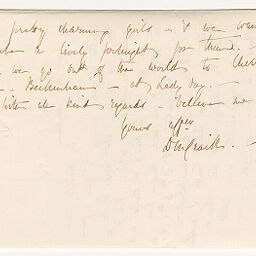 pretty charming girls - & we want
a lively fortnight for them. -
we go out of the world to
- Beckenham - at Lady day. -
With all kind regards - believe me
Yours affec
D M Craik. -